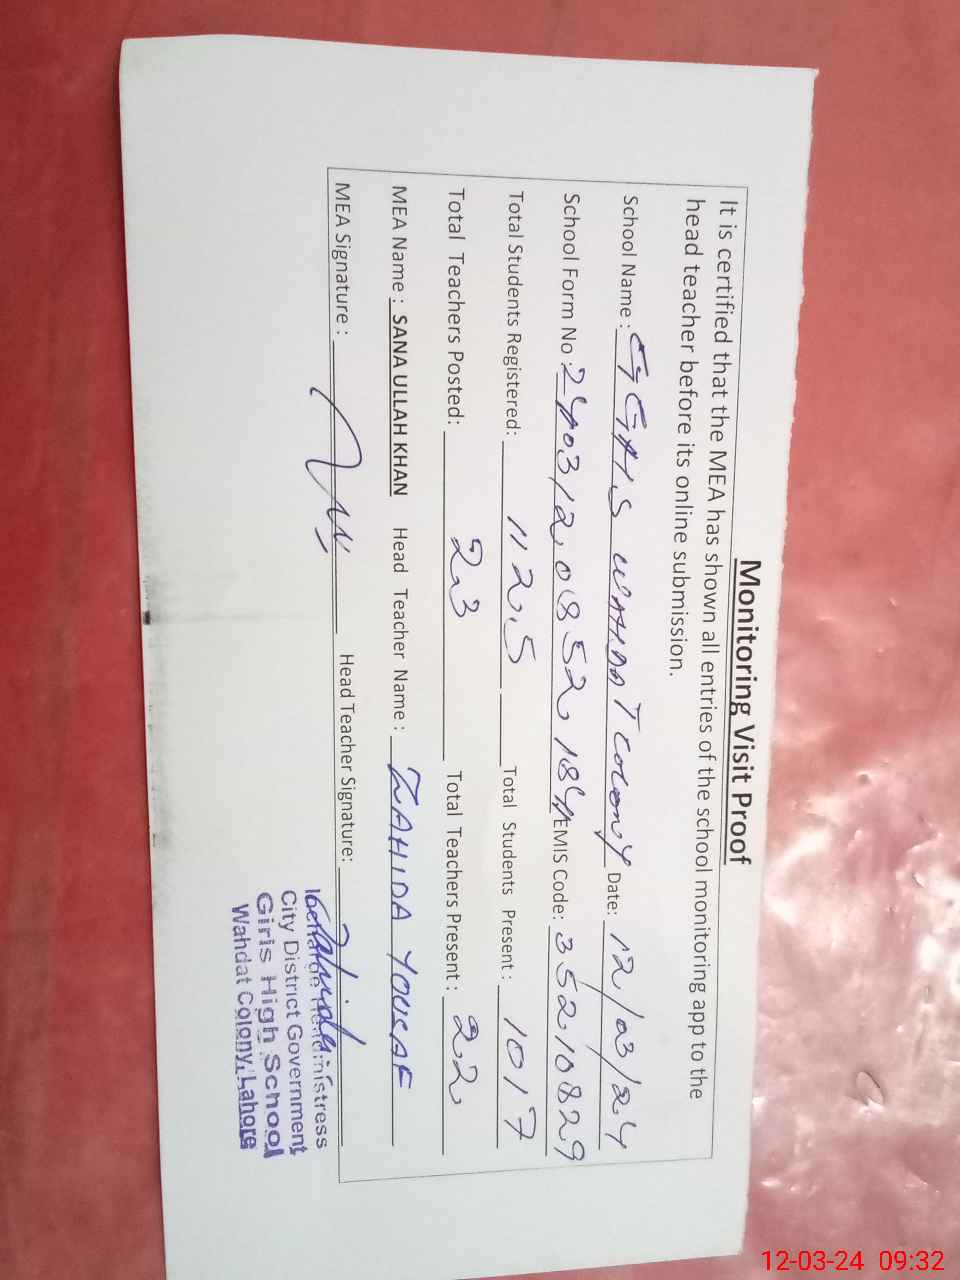 Monitoring Visit Proof
It is certified that the MEA has shown all entries of the school monitoring app to the
head teacher before its online submission.
School Name : CDGHS WAHDAT COLONY Date: 12/03/24
School Form No : EMIS Code: 35210829
Total Students Registered: 1125 Total Students Present : 1017
Total Teachers Posted: 23 Total Teachers Present : 22
MEA Name : SANA ULLAH KHAN Head Teacher Name : ZAHIDA YOUSAF
MEA Signature : Head Teacher Signature:
City District Government
Girls High School
Wahdat Colony, Lahore
12-03-24 09:32